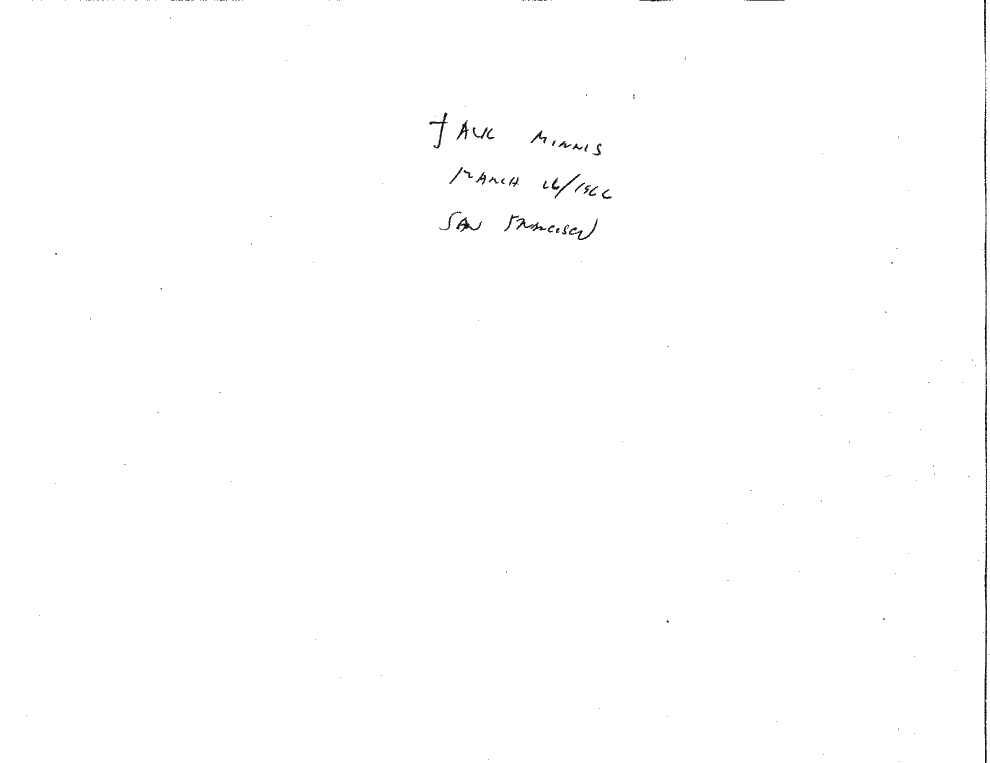 JACK MINNIS
MARCH 26/1966
SAN FRANCISCO